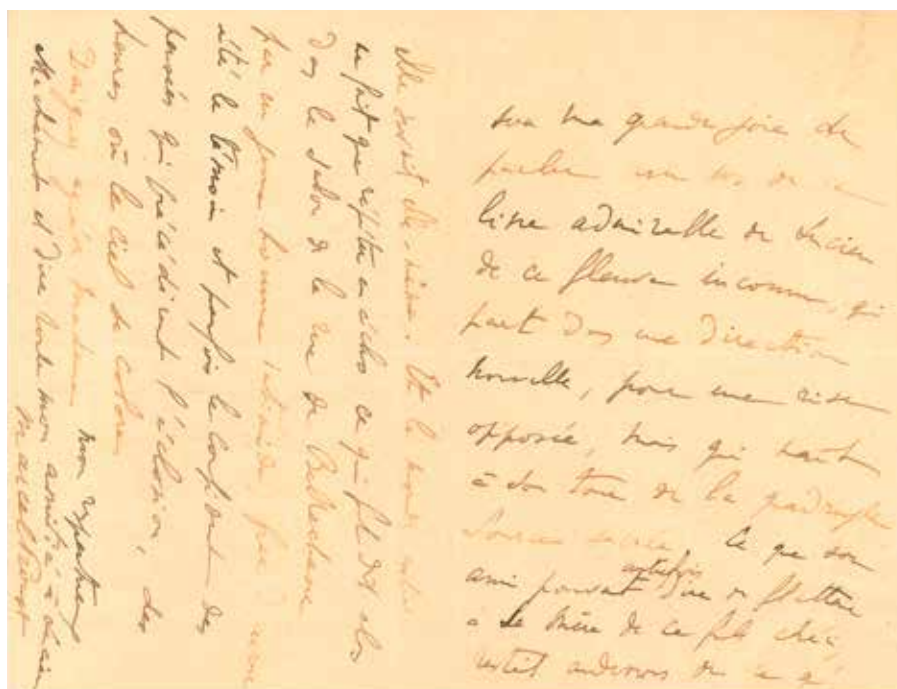 sera ma grande joie de
parler de ce
livre admirable de Lucien
de ce fleuve inconnu, qui
part dans une direction
nouvelle, pour une rive
opposée, mais qui naît
à son tour de la quadruple
source sacrée. Ce que son
ami pouvait autrefois dire de flatteur
à la Mère de ce fils chéri
restait au dessous de ce qu'
elle savait elle-même. Et le monde entier
ne fait que répéter en écho ce qui fut dit alors
dans le salon de la rue de Bellechasse
par un jeune homme
été le témoin et parfois le confident des
pensées qui précédaient l'éclosion, des
heures où le ciel se colore
Daignez agréer Madame mon respectueux
et dire toute mon amitié à Lucien
Marcel Proust